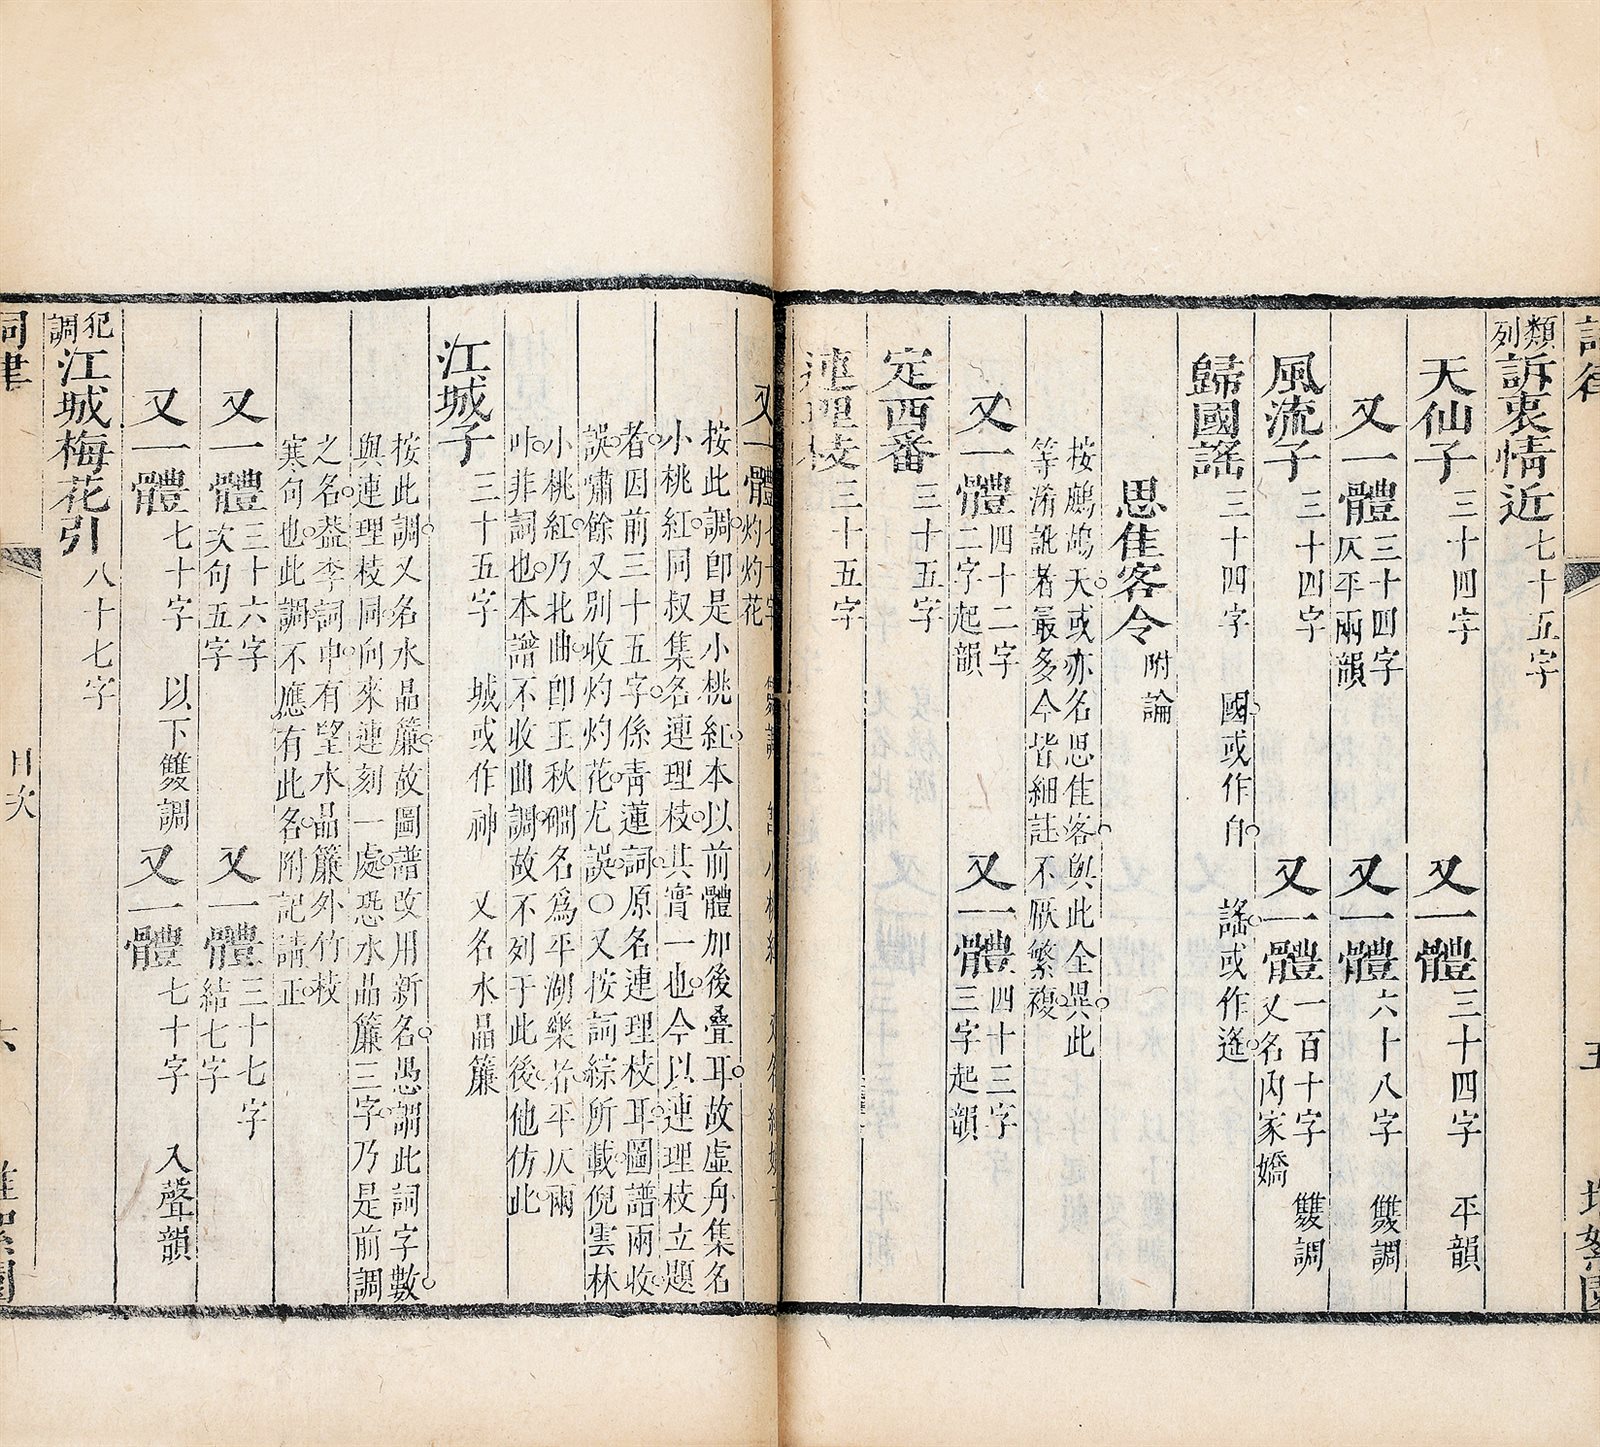 類列 訴衷情近 七十五字
天仙子 三十四字 又一體 三十四字 平韻
又一體 三十四字仄平兩韻 又一體 六十八字 雙調
風流子 三十四字 又一體 一百十字又名內家嬌 雙調
歸國謠 三十四字 國或作自 謠或作遙
思佳客令 附論
按鷓鴣天或亦名思佳客與此全異此
等淆訛者最多今皆細註不厭繁複
又一體 四十二字二字起韻 又一體 四十三字三字起韻
定西番 三十五字
連理枝 三十五字
又一體 七十字 灼灼花
按此調卽是小桃紅本以前體加後叠耳故虛舟集名
小桃紅同叔集名連理枝其實一也今以連理枝立題
者因前三十五字係靑蓮詞原名連理枝耳圖譜兩收
誤嘯餘又別收灼灼花尤誤○又按詞綜所載倪雲林
小桃紅乃北曲卽王秋磵名爲平湖樂者平仄兩
叶非詞也本譜不收曲調故不列于此後他倣此
江城子 三十五字 城或作神 又名水晶簾
按此調又名水晶簾故圖譜改用新名愚謂此詞字數
與連理枝同向來連刻一處恐水晶簾三字乃是前調
之名蓋李詞中有望水晶簾外竹枝
寒句也此調不應有此名附記請正
又一體 三十六字次句五字 又一體 三十七字結七字
又一體 七十字 以下雙調 又一體 七十字 入聲韻
犯調 江城梅花引 八十七字
詞律 目次 六 堆絮園